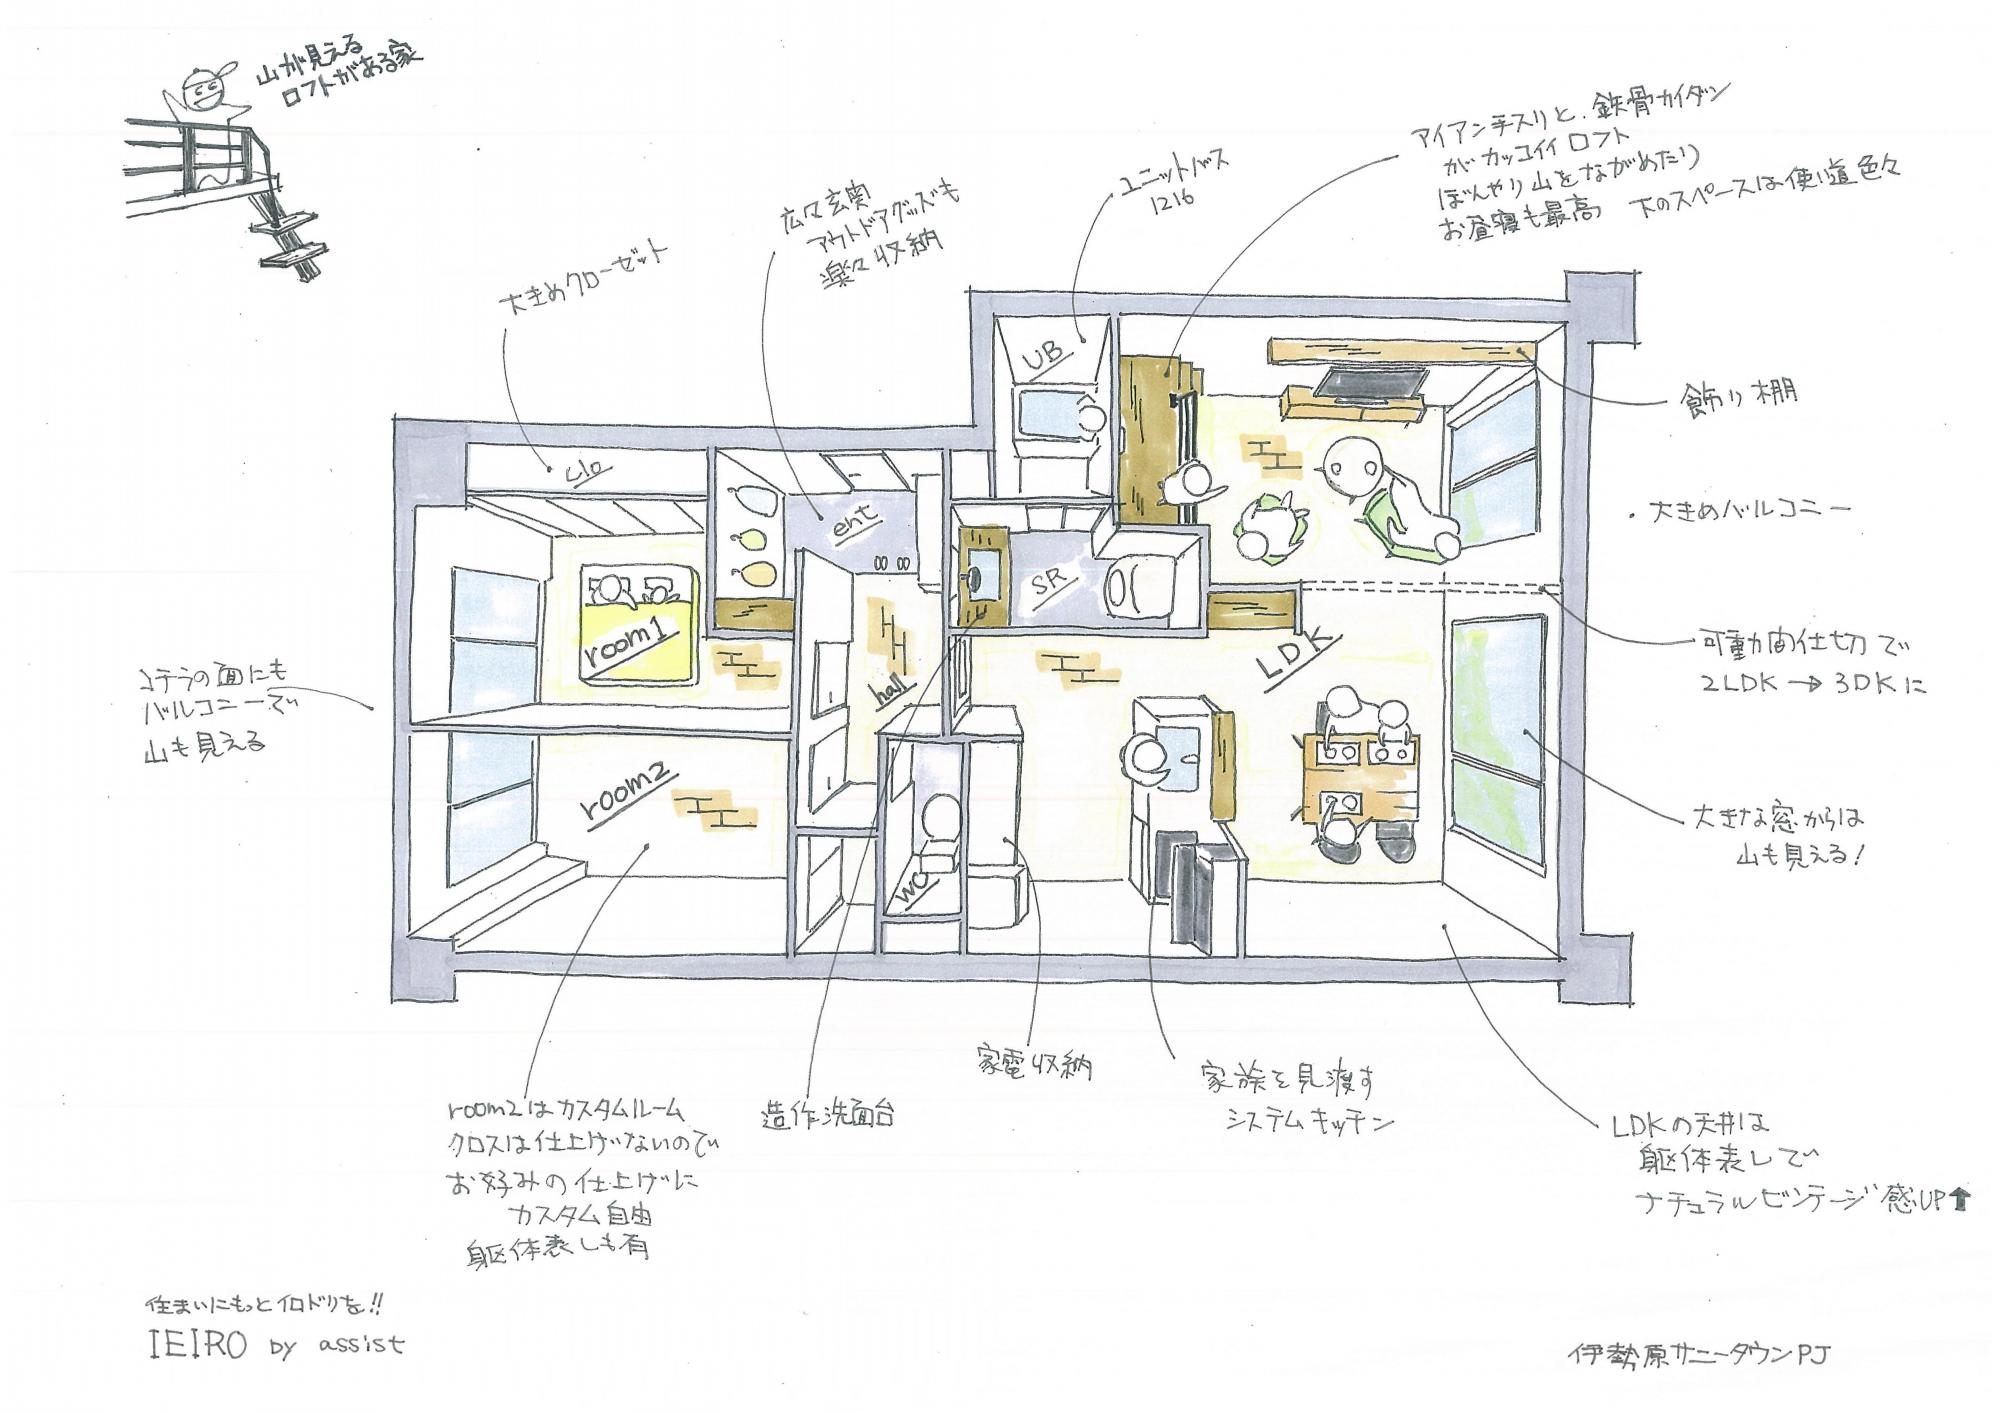 山が見える
ロフトがある家
アイアン手スリと、鉄骨カイダン
がカッコイイロフト
ぼんやり山をながめたり
お昼寝も最高 下のスペースは使い道色々
ユニットバス
1216
広々玄関
アウトドアグッズも
楽々収納
大きめクローゼット
飾り棚
大きめバルコニー
可動間仕切で
2LDK→3DKに
大きな窓からは
山も見える!
コチラの面にも
バルコニーで
山も見える
UB
clo
ent
SR
room1
LDK
hall
room2
WC
room2はカスタムルーム
クロスは仕上げないので
お好みの仕上げに
カスタム自由
躯体表しも有
造作洗面台
家電収納
家族を見渡す
システムキッチン
LDKの天井は
躯体表しで
ナチュラルビンテージ感UP⬆
住まいにもっとイロドリを!!
IEIRO by assist
伊勢原サニータウンPJ